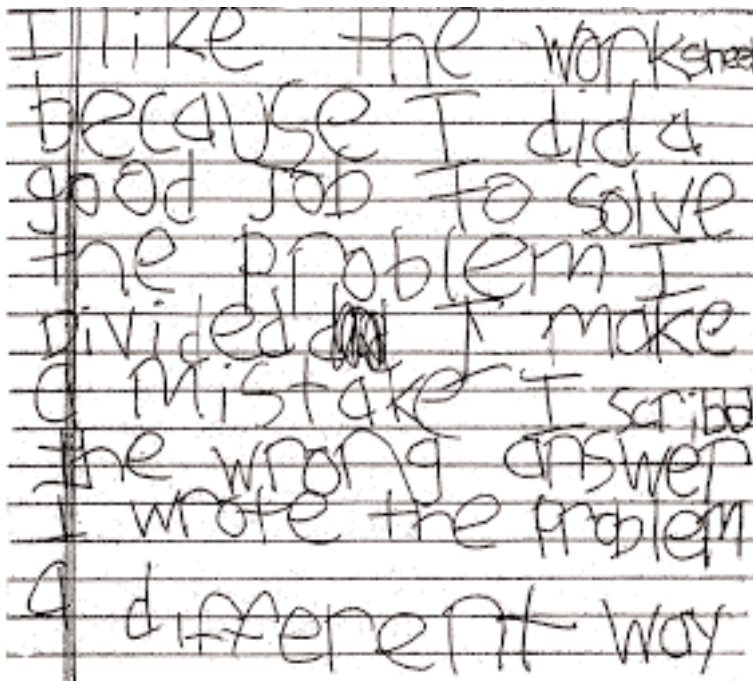 I like the worksheet
because I did a
good Job to solve
the problem I
Divided I make
a mistake I scribb
the wrong answer
I wrote the problem
a different way